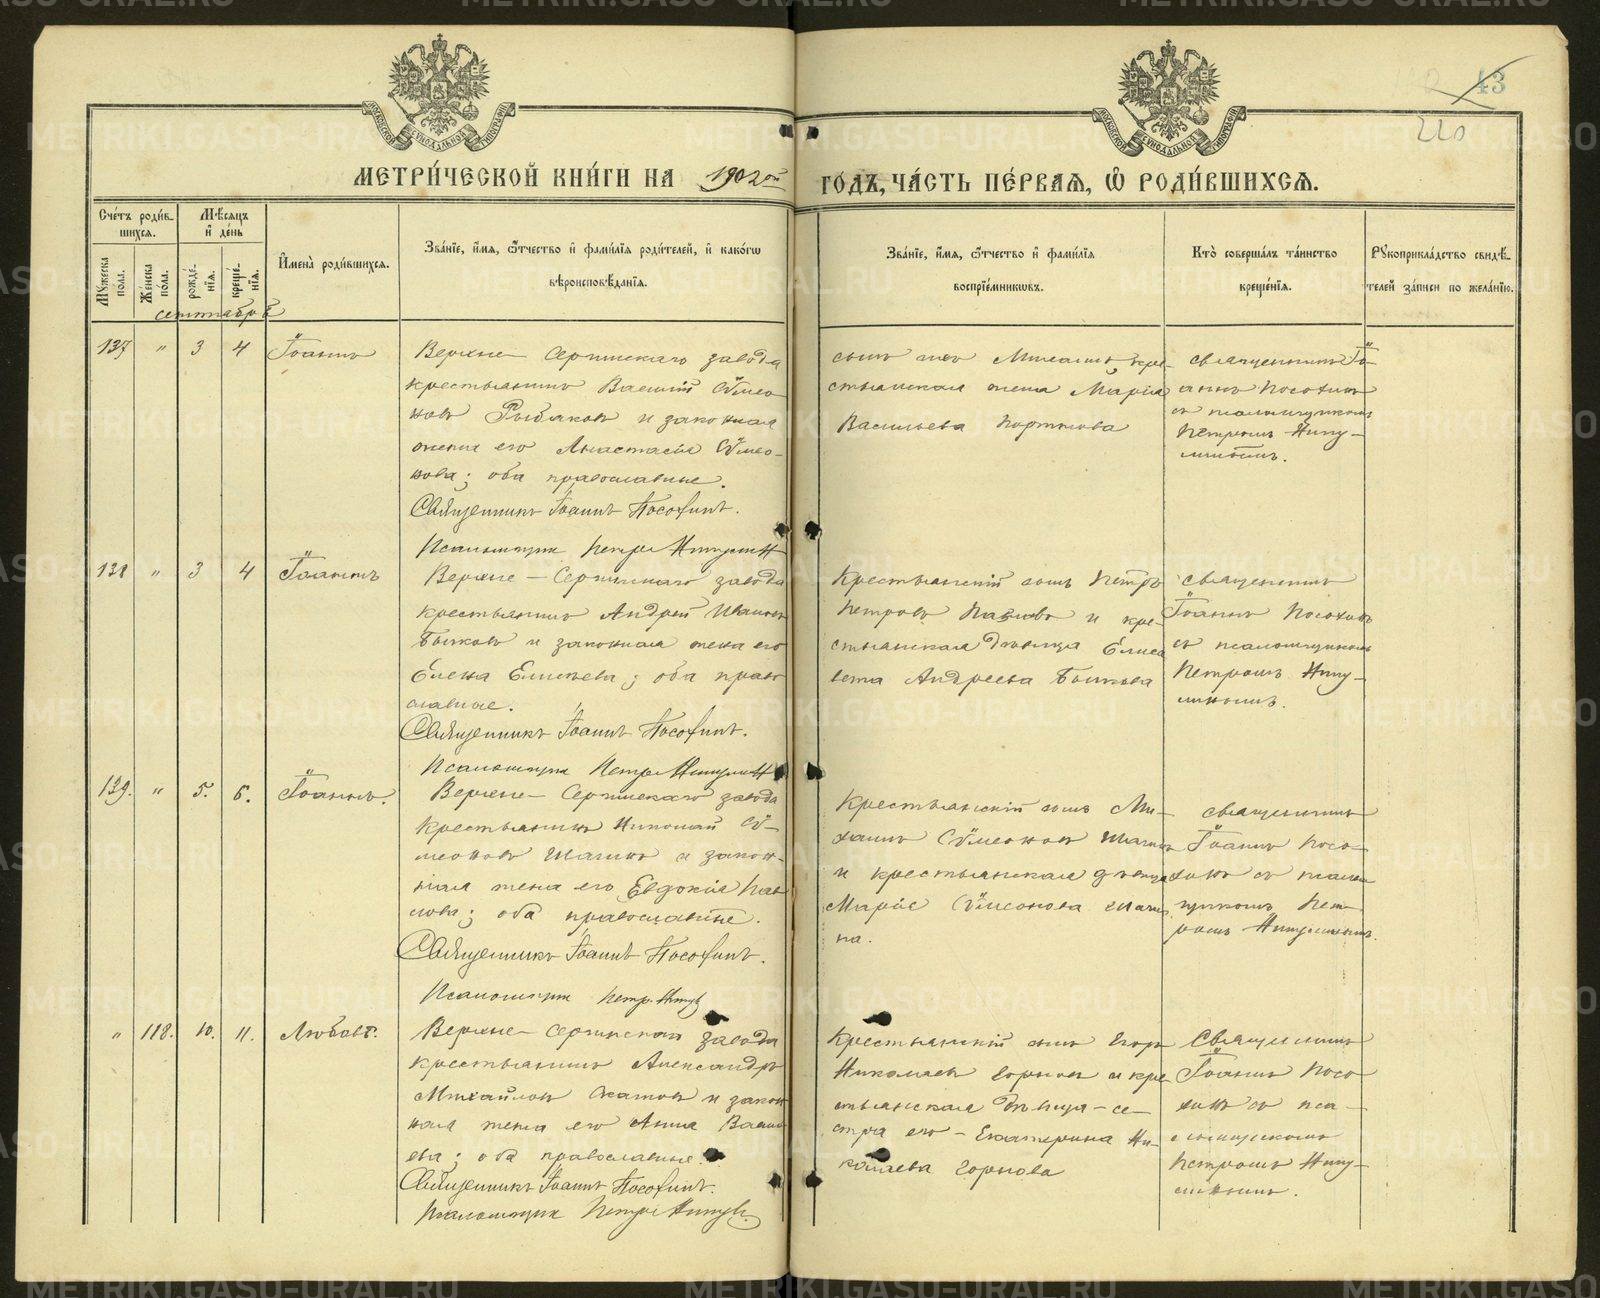 43
220
МЕТРИ́ЧЕСКОЙ КНИ́ГИ НА 1902ой ГО́ДЪ, ЧА́СТЬ ПЕ́РВАЯ, Ѡ РОДИ́ВШИХСЯ.
Сче́тъ роди́в-
шихся.
Му́жеска по́ла.
Же́нска по́ла.
Мѣ́сяцъ
и҆ де́нь
рожде́-
нїя.
креще́-
нїя.
И҆мена̀ роди́вшихся.
Зва́нїе, и҆́мя, ѻ҆́тчество и҆ фами́лїя роди́телей, и҆ како́гѡ
вѣроисповѣ́данїя.
Зва́нїе, и҆́мя, ѻ҆́тчество и҆ фами́лїя
воспрїе́мникѡвъ.
Кто̀ соверша́лъ та́инство
креще́нїя.
Рукоприкла́дство свидѣ́-
телей за́писи по жела́нїю.
сентябрь
137 " 3 4 Іоаннъ
Верхне-Сергинскаго завода
крестьянинъ Василій Сѵмео-
новъ Рыбаковъ и законная
жена его Анастасія Сѵмео-
нова; оба православные.
Священникъ Іоаннъ Посохинъ.
Псаломщикъ Петръ
сынъ
стьянская жена Марія
Васильева
священникъ Іо-
аннъ Посохинъ
съ псаломщикомъ
Петромъ
138 " 3 4 Іоаннъ
Верхне-Сергинскаго завода
крестьянинъ Андрей Ивановъ
Быковъ и законная жена его
Елена Елисеева; оба право
славные.
Священникъ Іоаннъ Посохинъ.
Псаломщикъ Петръ
Крестьянскій сынъ Петръ
Петровъ и кре-
стьянская дѣвица Елиса
вета Андреева Быкова
священникъ
Іоаннъ Посохинъ
съ псаломщикомъ
Петромъ
139. " 5. 6. Іоаннъ.
Верхне-Сергинскаго завода
крестьянинъ Николай Сѵ-
меоновъ и закон-
ная жена его Евдокія Пав
лова; оба православные.
Священникъ Іоаннъ Посохинъ.
Псаломщикъ Петръ
Крестьянскій сынъ Ми-
хаилъ Сѵмеоновъ
и крестьянская дѣвица
Марія Сѵмеонова
на.
священникъ
Іоаннъ Посо-
хинъ съ псалом
щикомъ Пет-
ромъ
" 118. 10. 11. Любовь.
Верхне-Сергинскаго завода
крестьянинъ Александръ
Михайловъ и закон
ная жена его Анна Васил
ева; оба православные.
Священникъ Іоаннъ Посохинъ.
Псаломщикъ Петръ
Крестьянскій сынъ Егоръ
Николаевъ Горновъ и кре
стьянская дѣвица-се-
стра его-Екатерина Ни-
колаева Горнова
Священникъ
Іоаннъ Посо
хинъ съ пса-
ломщикомъ
Петромъ